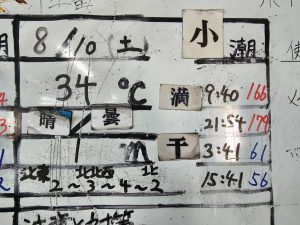 8/10 (土) 小潮
34 ℃ 満 9:40 166
21:54 179
晴/曇
1 m 干 3:41 61
北東 北北西 北 15:41 56
2～3～4～2